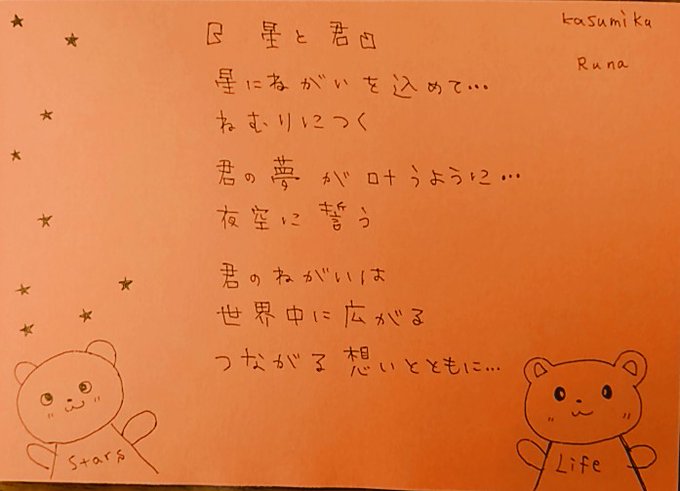 『星と君』
kasumika
Runa
星にねがいを込めて…
ねむりにつく
君の夢が叶うように…
夜空に誓う
君のねがいは
世界中に広がる
つながる想いとともに…
Stars
Life